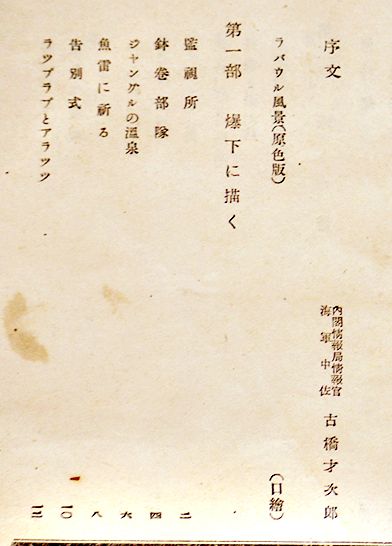 序文 內閣情報局情報官 海軍中佐 古橋才次郎
ラバウル風景(原色版) (口繪)
第一部 爆下に描く
監視所 二
鉢巻部隊 四
ジャングルの溫泉 六
魚雷に祈る 八
告別式 一〇
ラツプラプとアラツツ 一二